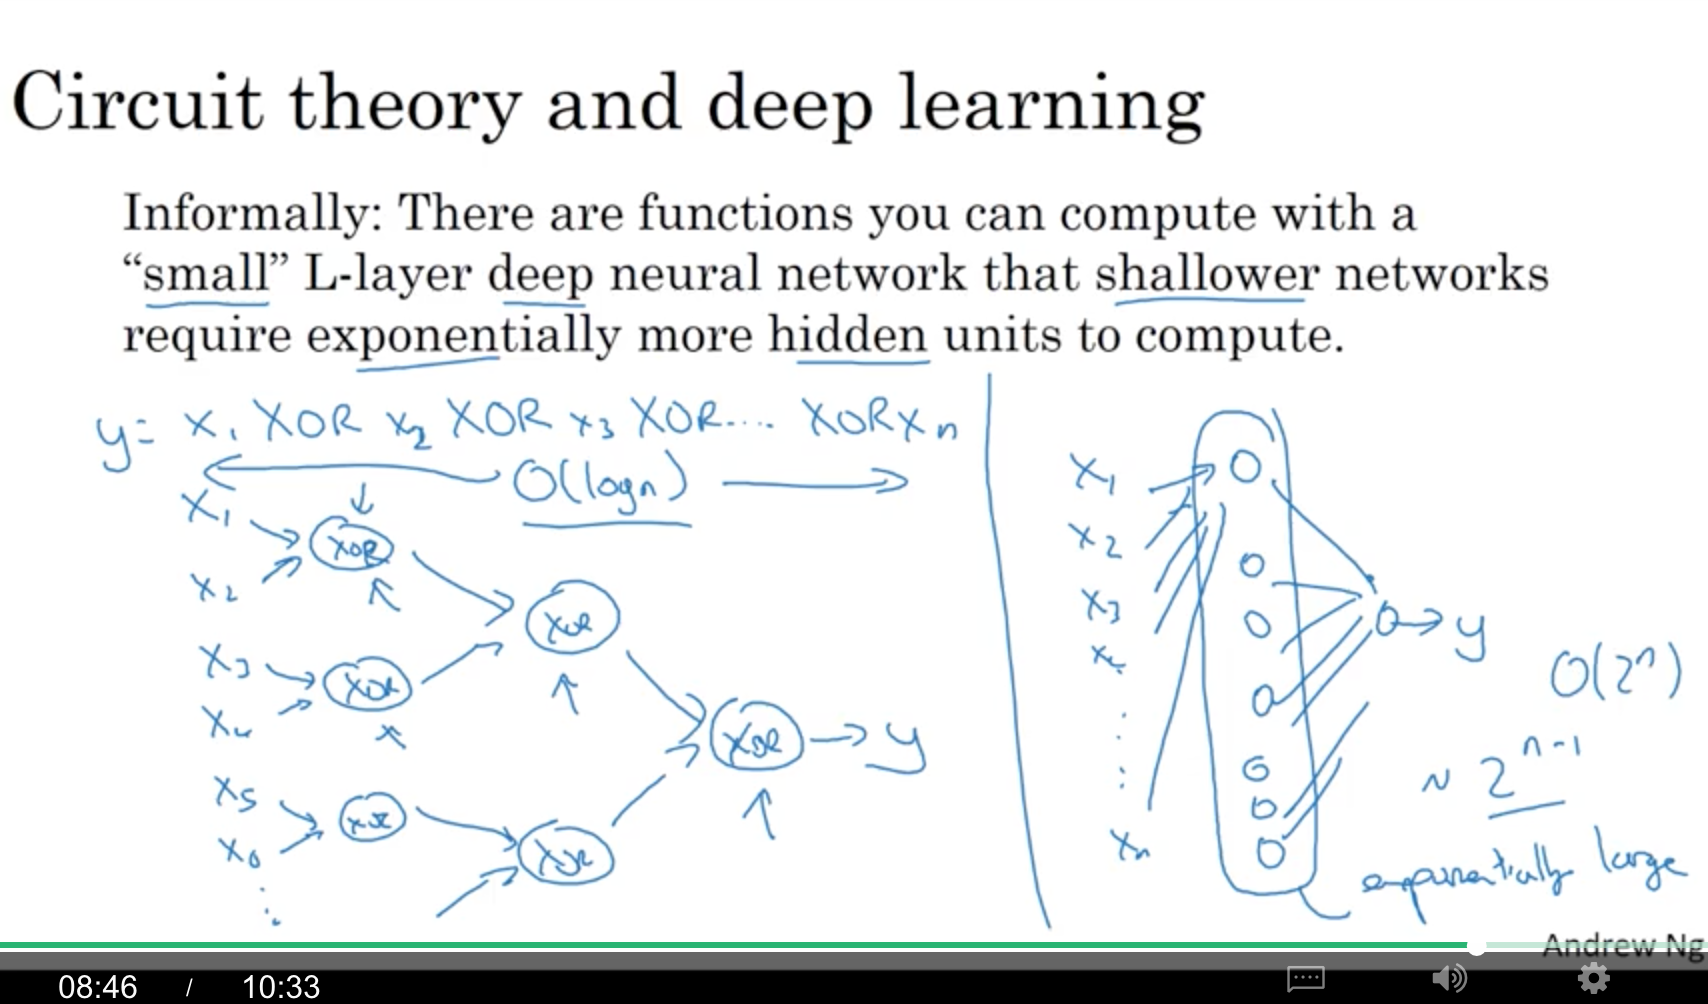 Circuit theory and deep learning
Informally: There are functions you can compute with a
“small” L-layer deep neural network that shallower networks
require exponentially more hidden units to compute.
y= x1 XOR x2 XOR x3 XOR.... XOR xn
O(logn)
x1
x2
XOR
x3
x4
XOR
x5
x6
XOR
XOR
XOR
XOR → y
x1
x2
x3
x4
xn
y
O(2^n)
~ 2^n-1
exponentially large
Andrew Ng
08:46 / 10:33